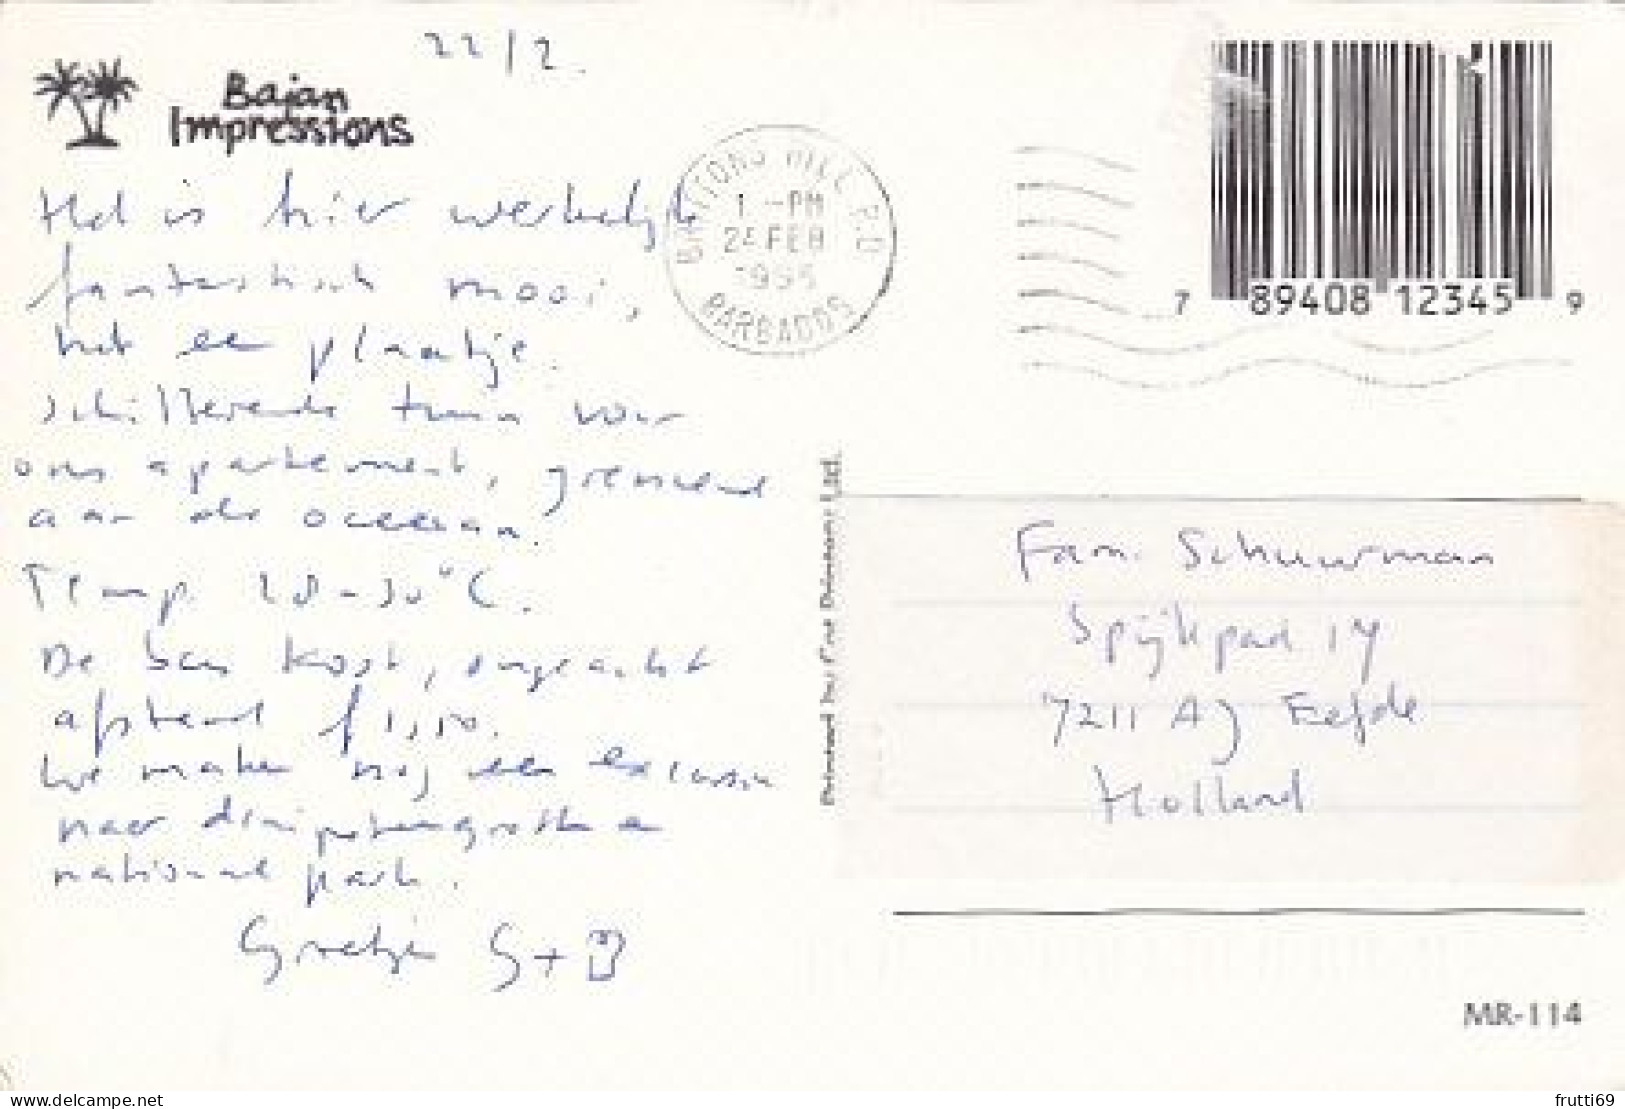 22/2.
Bajan
Impressions
Het is hier werkelijk
fantastisch mooi,
net een plaatje.
Schitterende tuin voor
ons apartement, grenzend
aan de oceaan.
Temp. 28-30°C.
De bus kost, ongeacht
afstand f 1,50.
We maken nog een excursie
naar druipsteengrotten en
nationaal park.
Groetjes G+B
BRITTONS HILL P.O
1 -PM
FEB
BARBADOS
7 89408 12345 9
Printed by Fine Printers Ltd.
Fam. Schuurman
Spijkpad 14
7211 AJ Eefde
Holland
MR-114
frutti69